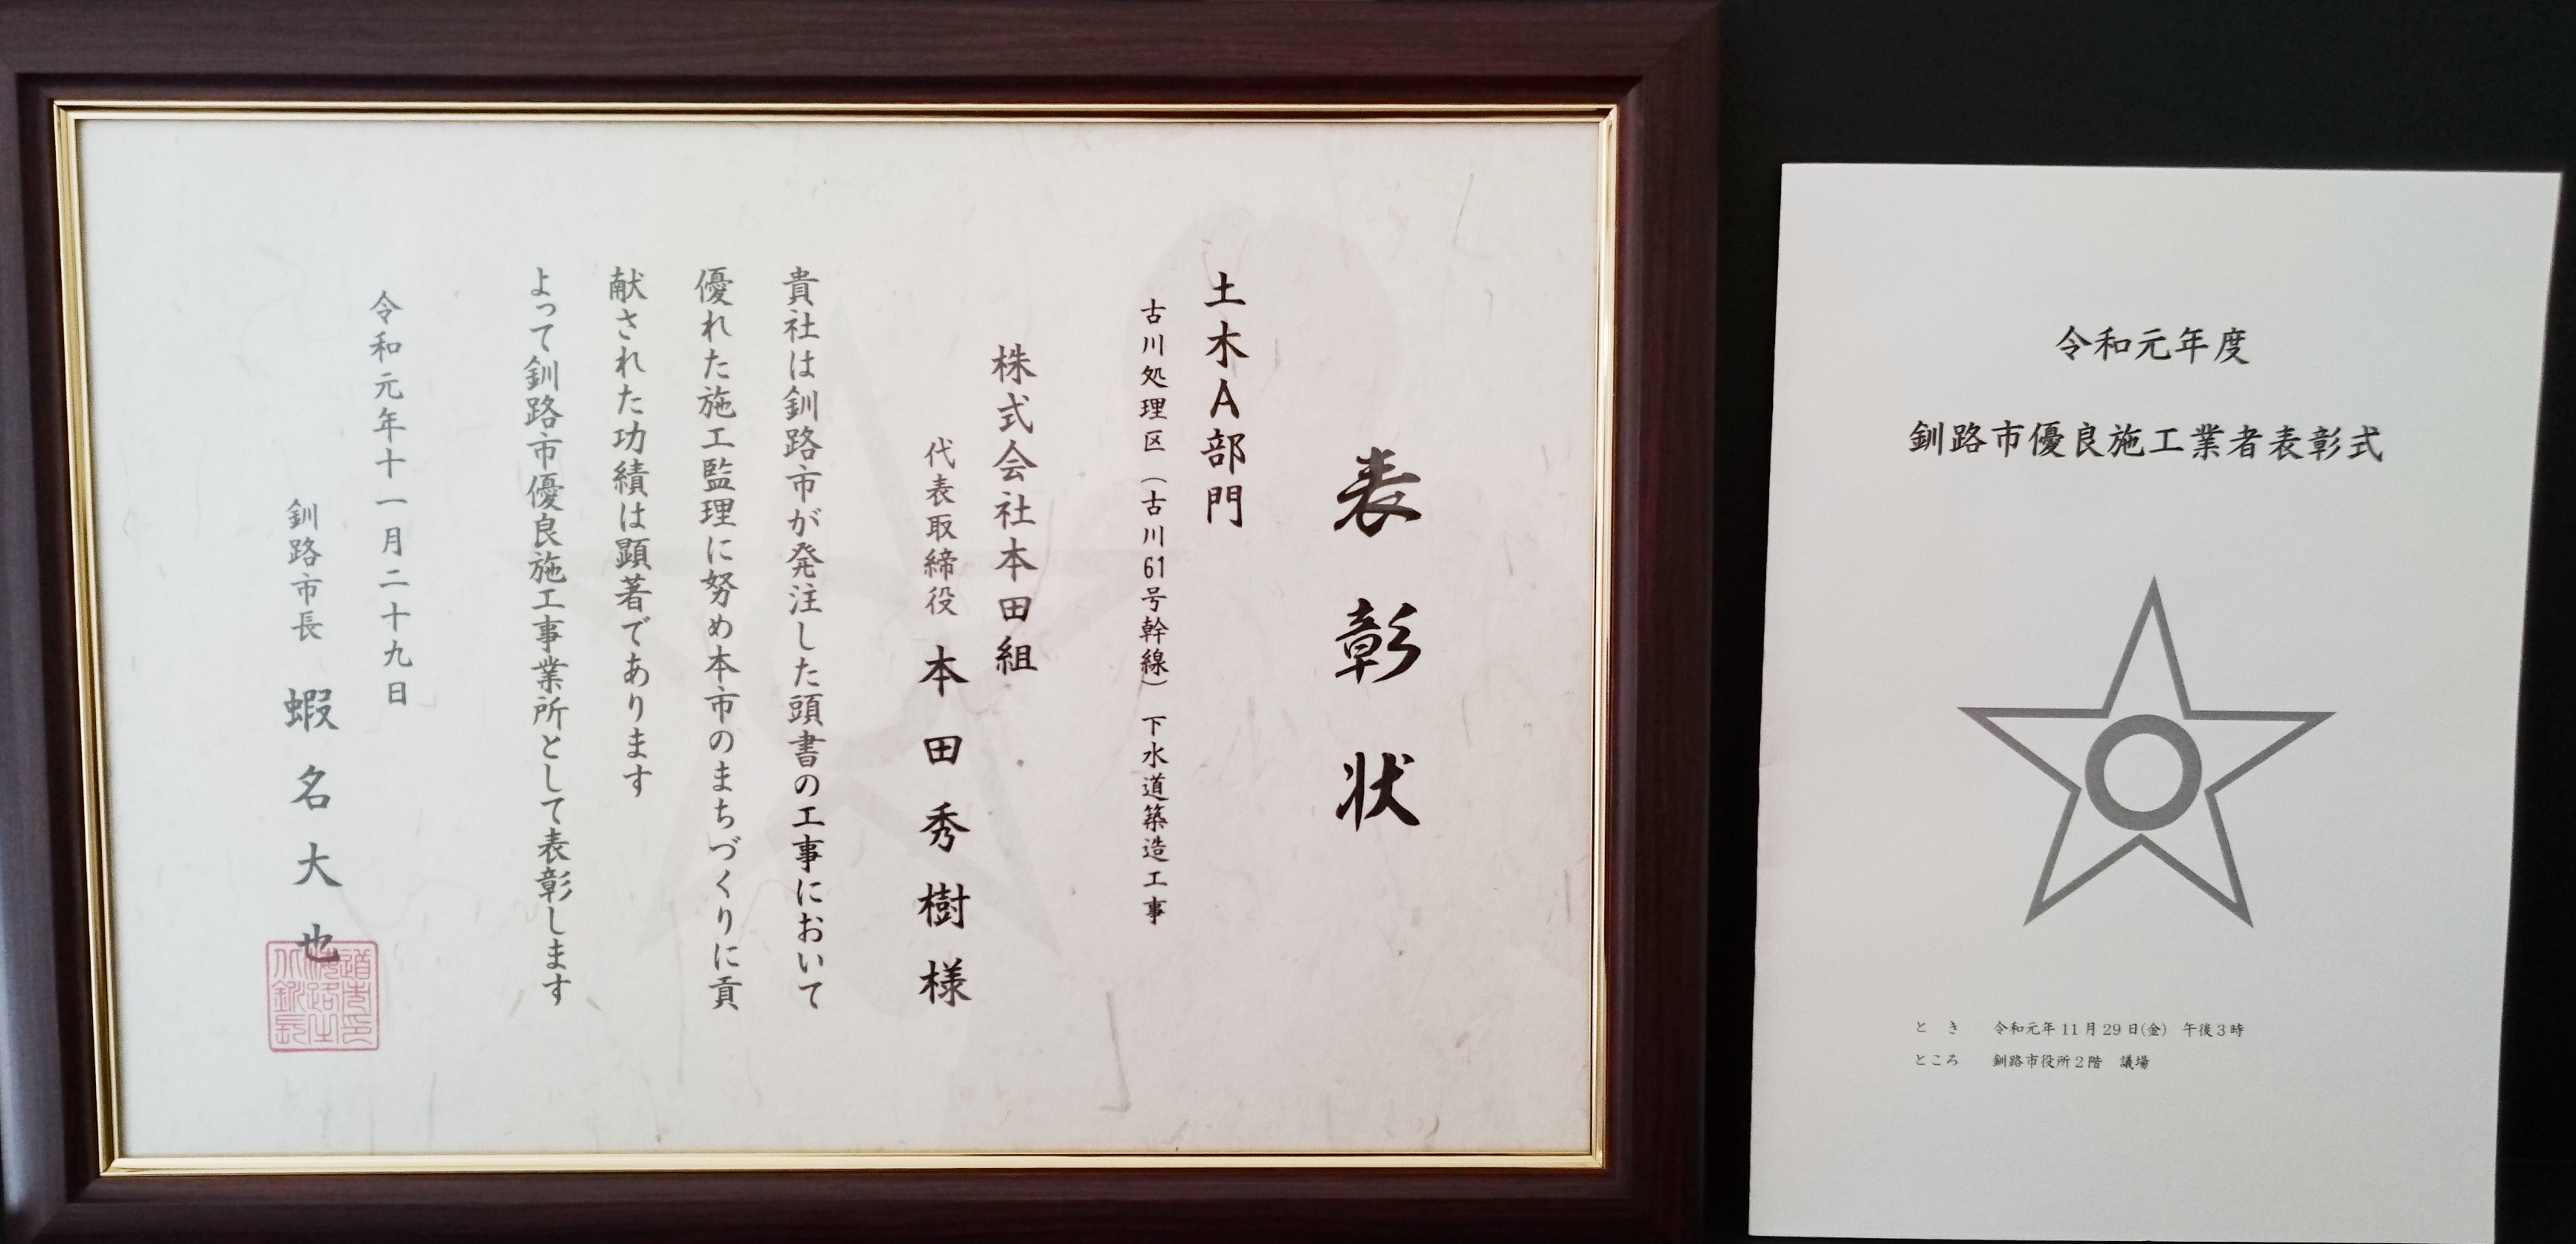 表彰状
土木A部門
古川処理区(古川61号幹線)下水道築造工事
株式会社本田組
代表取締役 本田秀樹様
貴社は釧路市が発注した頭書の工事において
優れた施工監理に努め本市のまちづくりに貢
献された功績は顕著であります
よって釧路市優良施工事業所として表彰します
令和元年十一月二十九日
釧路市長 蝦名大也
令和元年度
釧路市優良施工業者表彰式
とき 令和元年11月29日(金) 午後3時
ところ 釧路市役所2階 議場